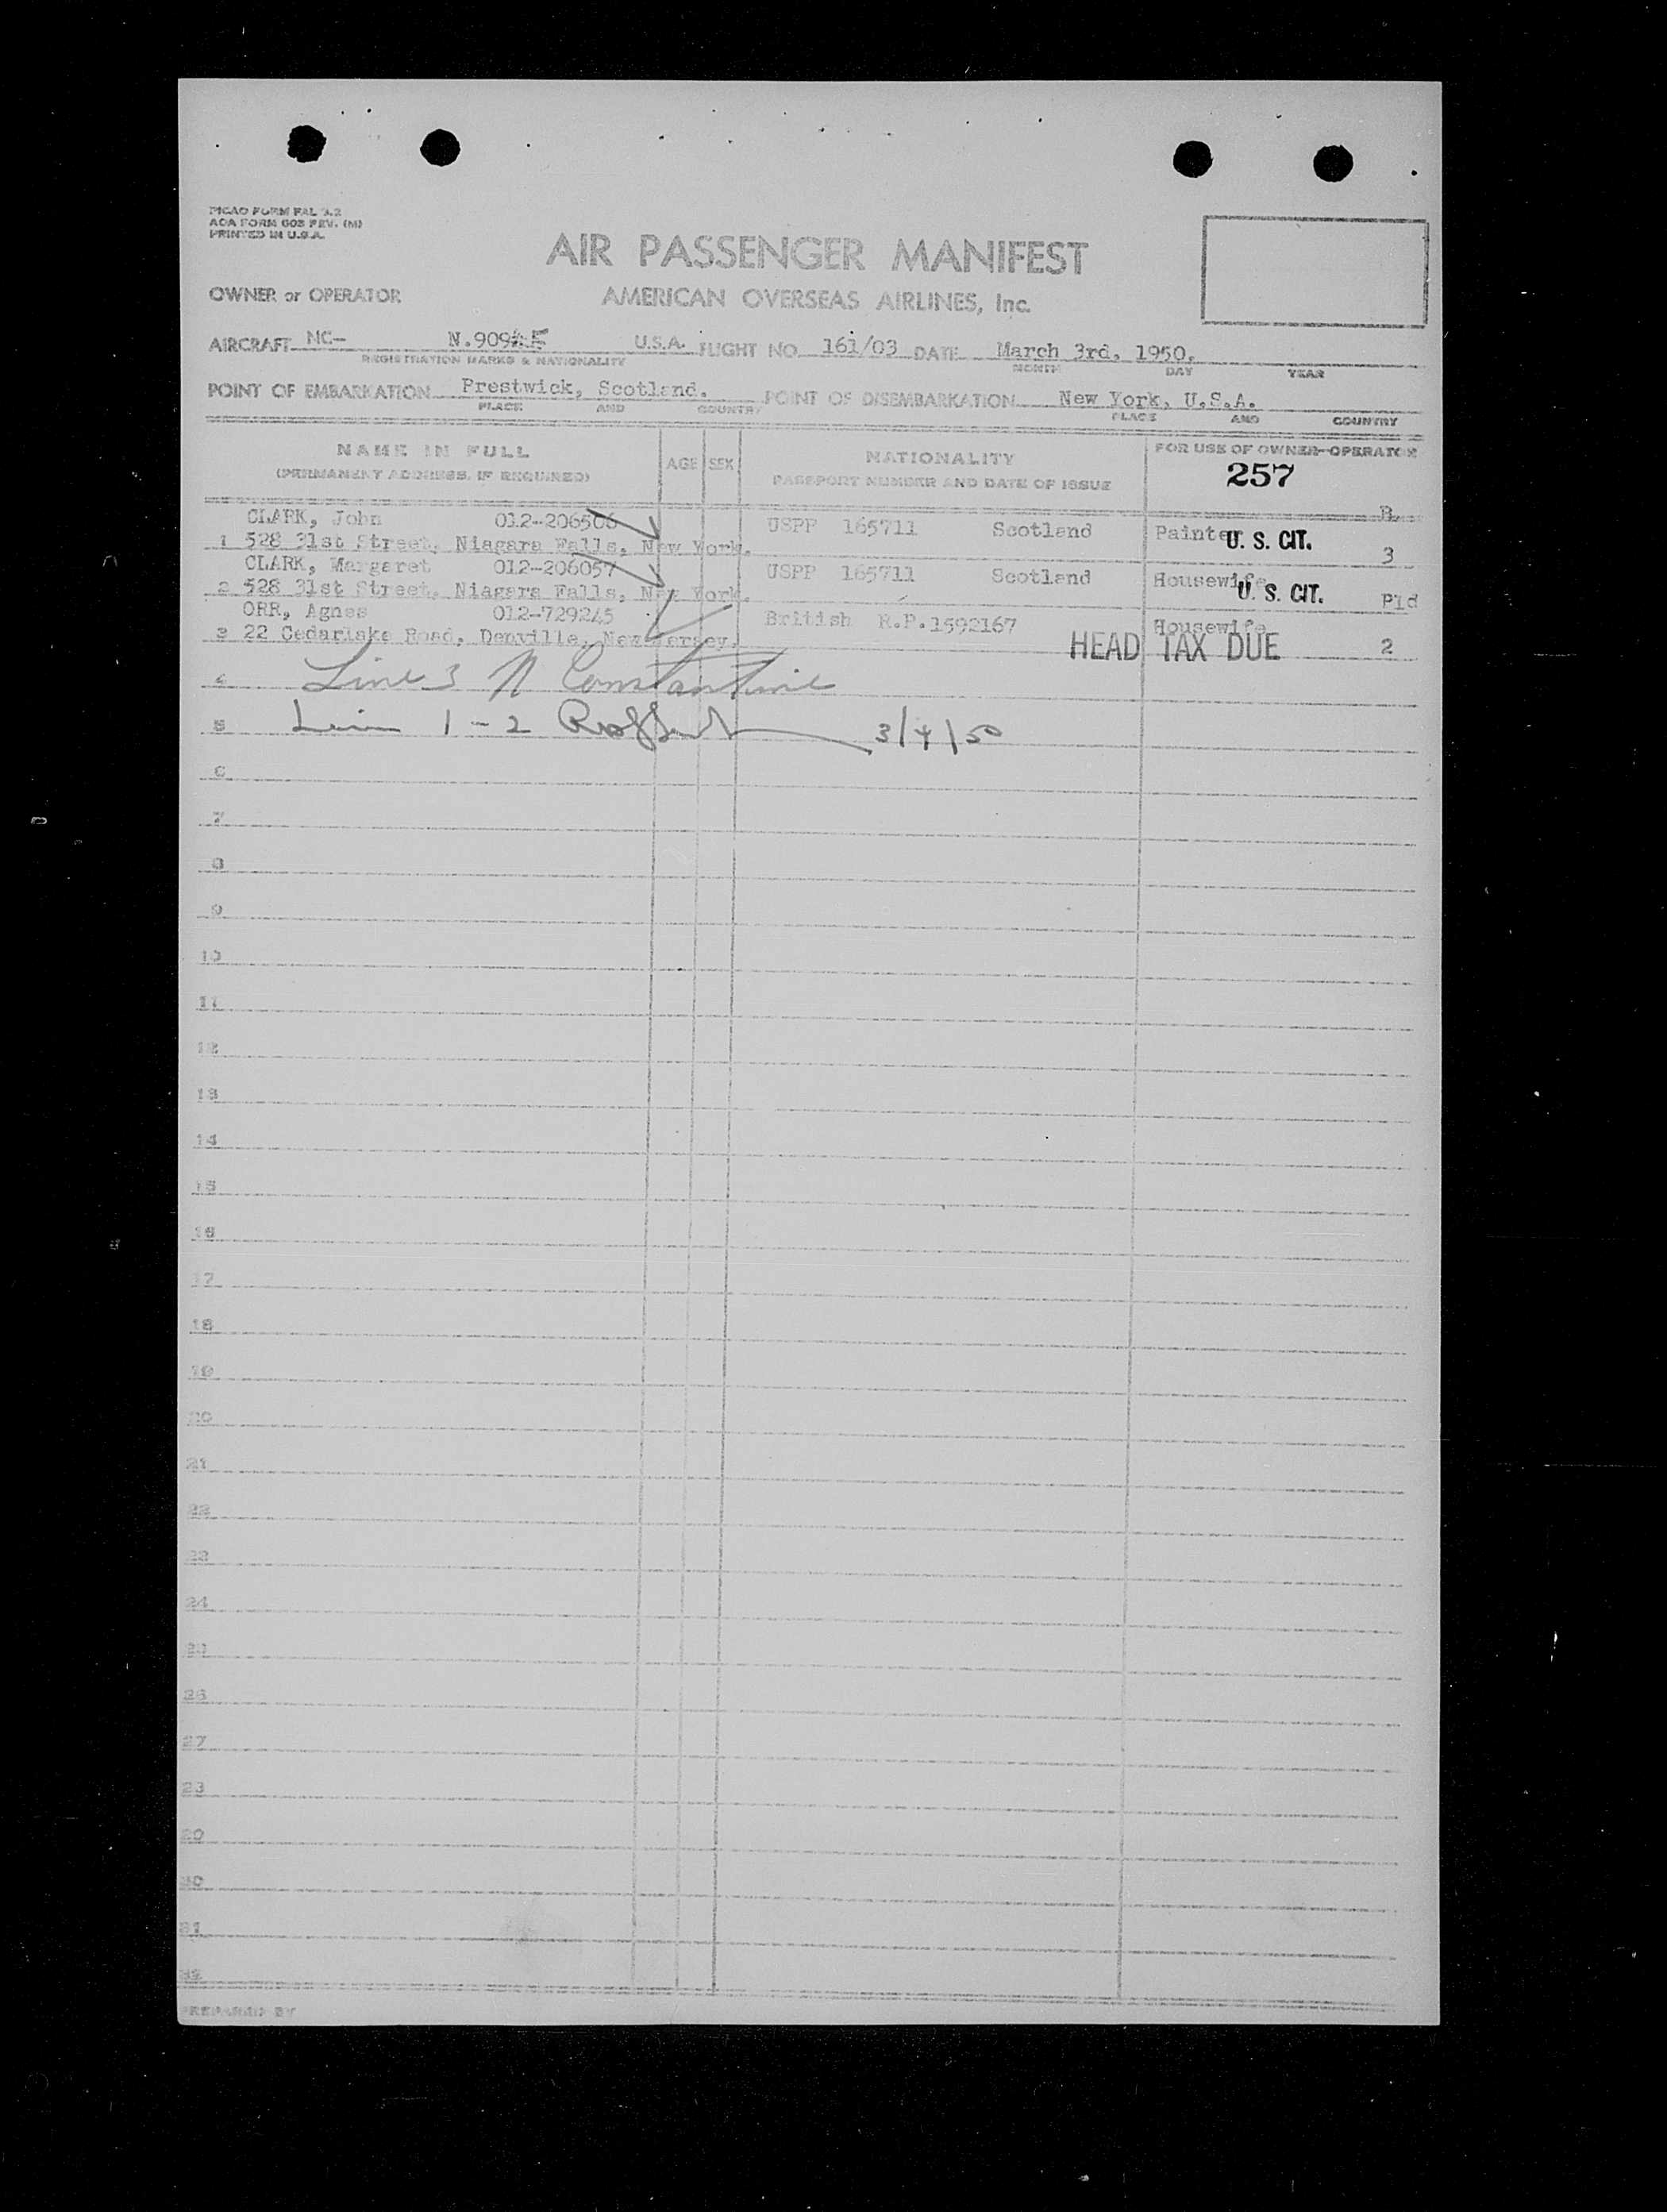 PICAO FORM FAL 3.2
AOA FORM 603 REV. (M)
PRINTED IN U.S.A.
AIR PASSENGER MANIFEST
OWNER or OPERATOR AMERICAN OVERSEAS AIRLINES, Inc.
AIRCRAFT NC- U.S.A. FLIGHT NO. 161/03 DATE March 3rd, 1950.
REGISTRATION MARKS & NATIONALITY MONTH DAY YEAR
POINT OF EMBARKATION Prestwick, Scotland. POINT OF DISEMBARKATION New York, U.S.A.
PLACE AND COUNTRY PLACE AND COUNTRY
NAME IN FULL AGE SEX NATIONALITY FOR USE OF OWNER-OPERATOR
(PERMANENT ADDRESS, IF REQUIRED) PASSPORT NUMBER AND DATE OF ISSUE 257
B.
CLARK, John 012-206506 USPP 165711 Scotland Painter U. S. CIT.
1 528 31st Street, Niagara Falls, New York. 3
CLARK, Margaret 012-206057 USPP 165711 Scotland Housewife U. S. CIT.
2 528 31st Street, Niagara Falls, New York. P1d
ORR, Agnes 012-729245 British R.P.1592167 Housewife
3 22 Cedarlake Road, Denville, New Jersey. HEAD TAX DUE 2
4 Line 3 N Constantine
5 Line 1-2 3/4/50
6
7
8
9
10
11
12
13
14
15
16
17
18
19
20
21
22
23
24
25
26
27
28
29
30
31
32
PREPARED BY